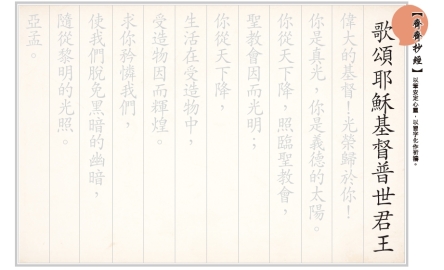 【齋齋抄經】
以筆安定心靈，以習字化作祈禱。
歌頌耶穌基督普世君王
偉大的基督！光榮歸於你！
你是真光，你是義德的太陽。
你從天下降，照臨聖教會，
聖教會因而光明；
你從天下降，
生活在受造物中，
受造物因而輝煌。
求你矜憐我們，
使我們脫免黑暗的幽暗，
隨從黎明的光照。
亞孟。